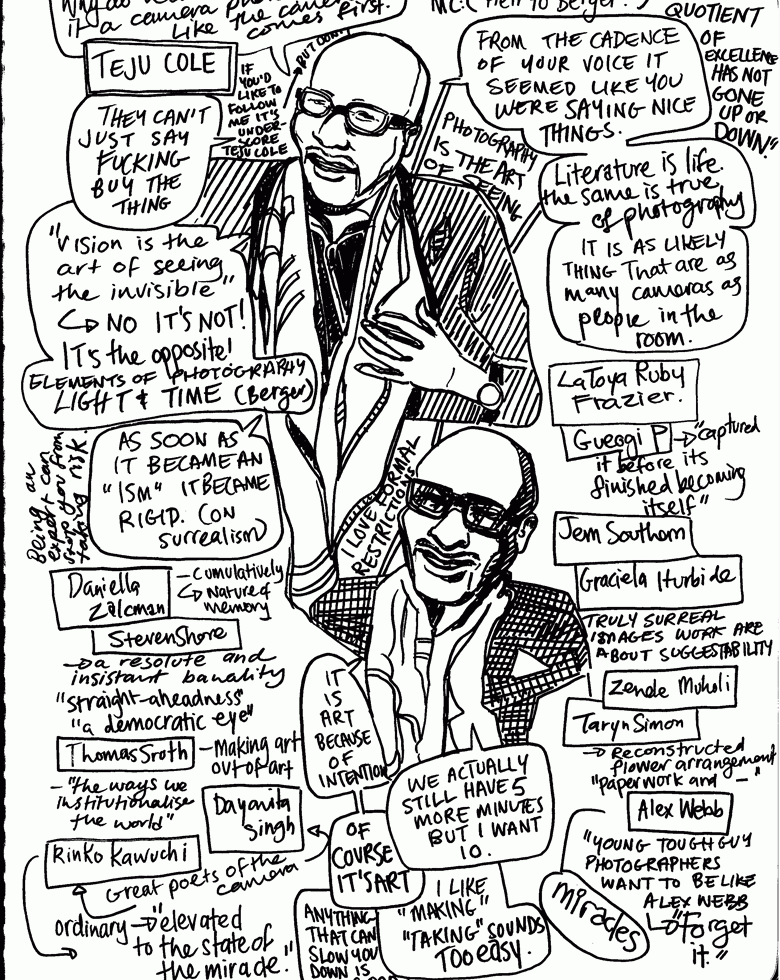 it a camera
Like the came
comes first."
TEJU COLE
BUT DON'T
IF
YOU'D
LIKE TO
FOLLOW
ME IT'S
UNDER-
SCORE
TEJU COLE
QUOTIENT
OF
EXCELLENCE
HAS NOT
GONE
UP OR
DOWN."
FROM THE CADENCE
OF YOUR VOICE IT
SEEMED LIKE YOU
WERE SAYING NICE
THINGS.
THEY CAN'T
JUST SAY
FUCKING
BUY THE
THING
PHOTOGRAPHY
IS THE ART
OF SEEING
Literature is life.
the same is true
of photography
IT IS AS LIKELY
THING That are as
many cameras as
people in the
room.
"Vision is the
art of seeing
the invisible"
NO IT'S NOT!
IT's the opposite!
ELEMENTS OF PHOTOGRAPHY
LIGHT & TIME (Berger)
LaToya Ruby
Frazier.
Gueogi P
"captured
it before its
finished becoming
itself"
Being an
expert can
stop you from
taking risk.
AS SOON AS
IT BECAME AN
"ISM" IT BECAME
RIGID. (ON
surrealism)
I LOVE FORMAL
RESTRICTIONS
Jem Southam
Graciela Iturbide
TRULY SURREAL
IMAGES WORK ARE
ABOUT SUGGESTABILITY
Daniella
Zalcman
- Cumulatively
Nature of
memory
Steven Shore
a resolute and
insistant banality
"straight-aheadness"
"a democratic eye"
Thomas Sroth
- Making art
out of art
- "the ways we
institutionalise
the world"
IT
IS
ART
BECAUSE
OF
INTENTION
Zenele Muholi
Taryn Simon
Reconstructed
flower arrangement
"paperwork and -"
WE ACTUALLY
STILL HAVE 5
MORE MINUTES
BUT I WANT
10.
Dayanita
Singh
OF
COURSE
IT'S ART
Rinko Kawuchi
Great poets of the
camera
ordinary
"elevated
to the state of
the miracle."
ANYTHING
THAT CAN
SLOW YOU
DOWN IS
I LIKE
"MAKING"
"TAKING" SOUNDS
TOO easy.
miracles
Alex Webb
"YOUNG TOUGH GUY
PHOTOGRAPHERS
WANT TO BE LIKE
ALEX WEBB
"forget
it."